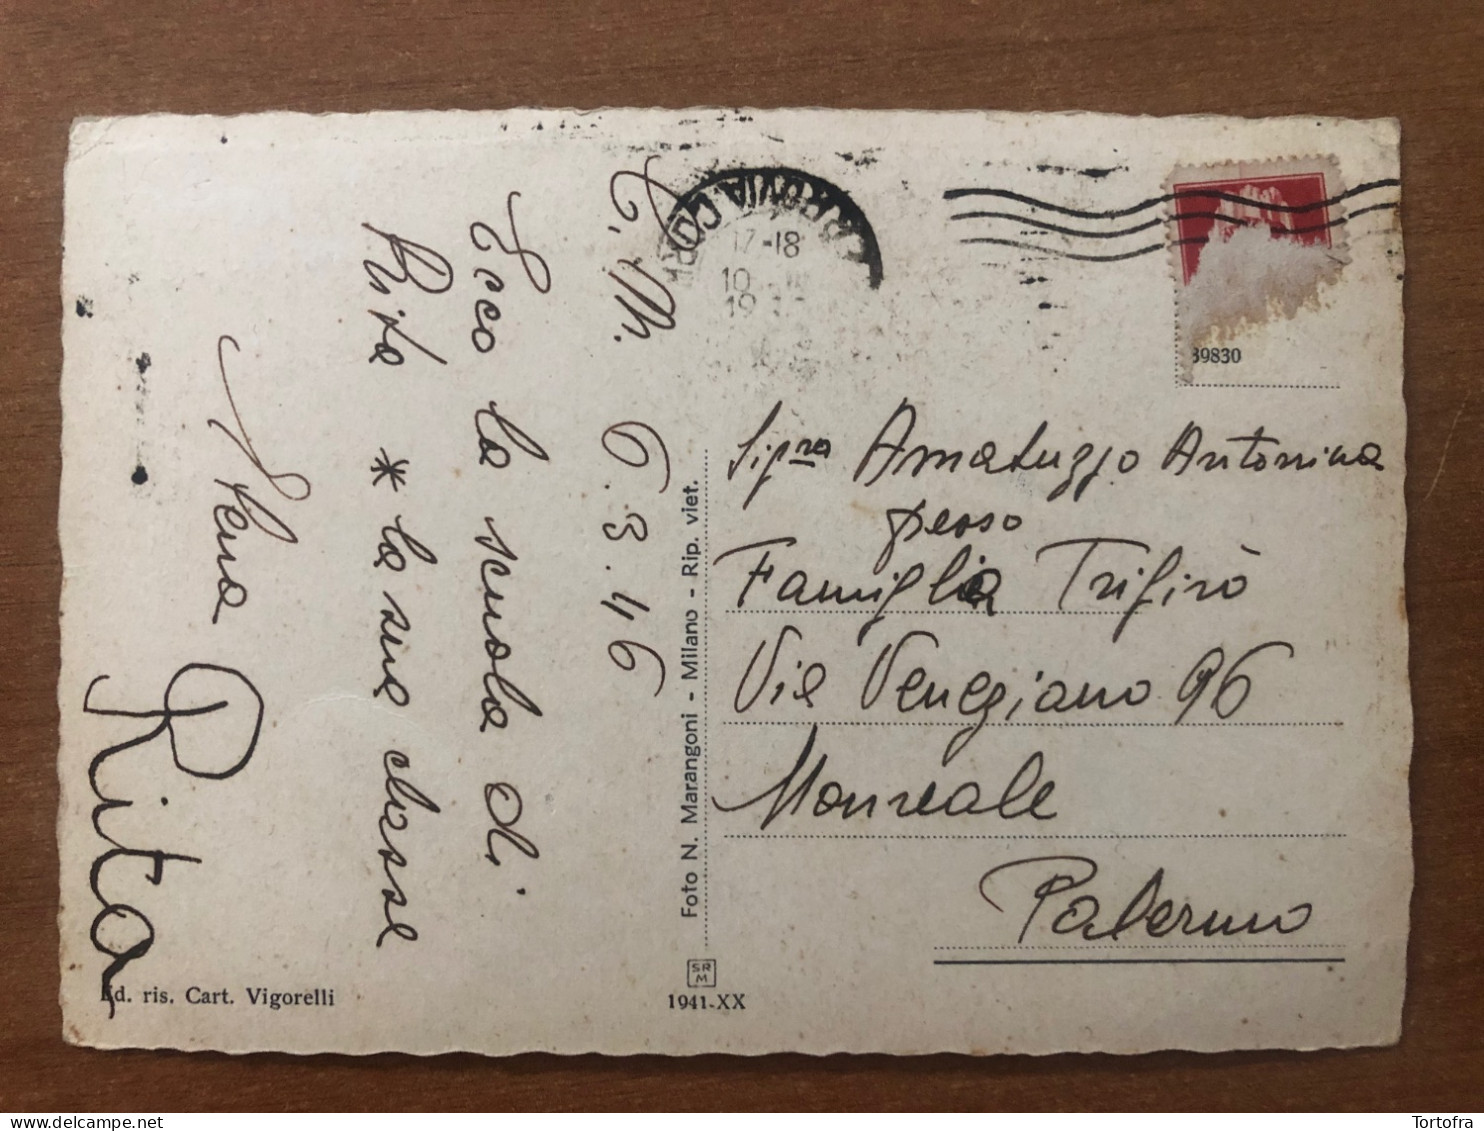 C. M. 6.3.46
Ecco la scuola di
Rita * la sua classe
Rita
17-18
10
19
39830
Sig.ra Amatuzzo Antonina
presso
Famiglia Trifirò
Via Veneziano 96
Monreale
Palermo
Foto N. Marangoni - Milano - Rip. viet.
SRM
1941-XX
Ed. ris. Cart. Vigorelli
Tortofra